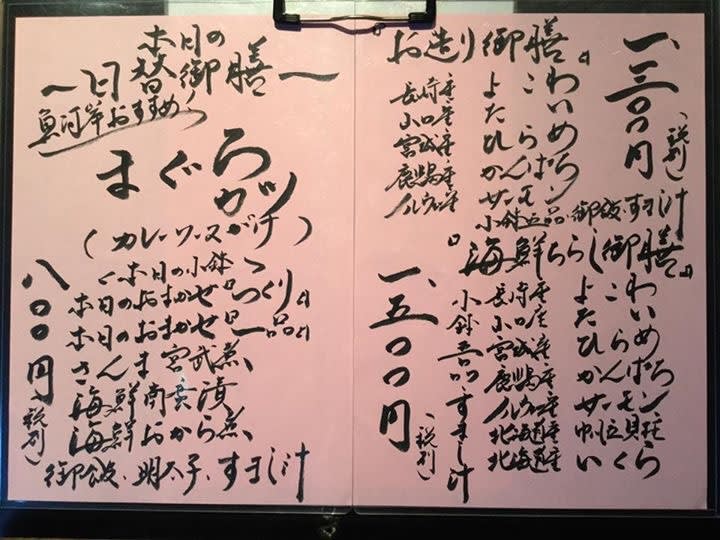 本日の
〜日替御膳〜
魚河岸おすすめ
まぐろ
カツ
(カレーソースがけ)
〈本日の小鉢〉
本日のおまかせ『つくり』
本日のおまかせ『一品』
さんま 煮
海鮮南蛮漬
海鮮おから煮
御飯・明太子・すまし汁
八〇〇円(税別)
『お造り御膳』
長崎産 よこわ
山口産 たい
宮城産 ひらめ
鹿児島産 かんぱち
ノルウェー産 サーモン
小鉢三品・御飯・すまし汁
一、三〇〇円(税別)
『海鮮ちらし御膳』
長崎産 よこわ
山口産 たい
宮城産 ひらめ
鹿児島産 かんぱち
ノルウェー産 サーモン
北海道産 帆立貝柱
北海道産 いくら
小鉢三品 すまし汁
一、五〇〇円(税別)